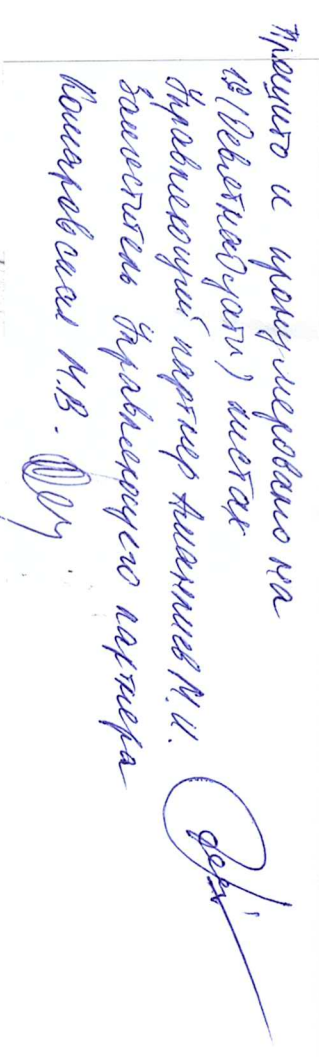 Прошито и пронумеровано на
19 (Девятнадцати) листах
Управляющий партнер Амантиев М.И.
Заместитель Управляющего партнера
Комаровская М.В.